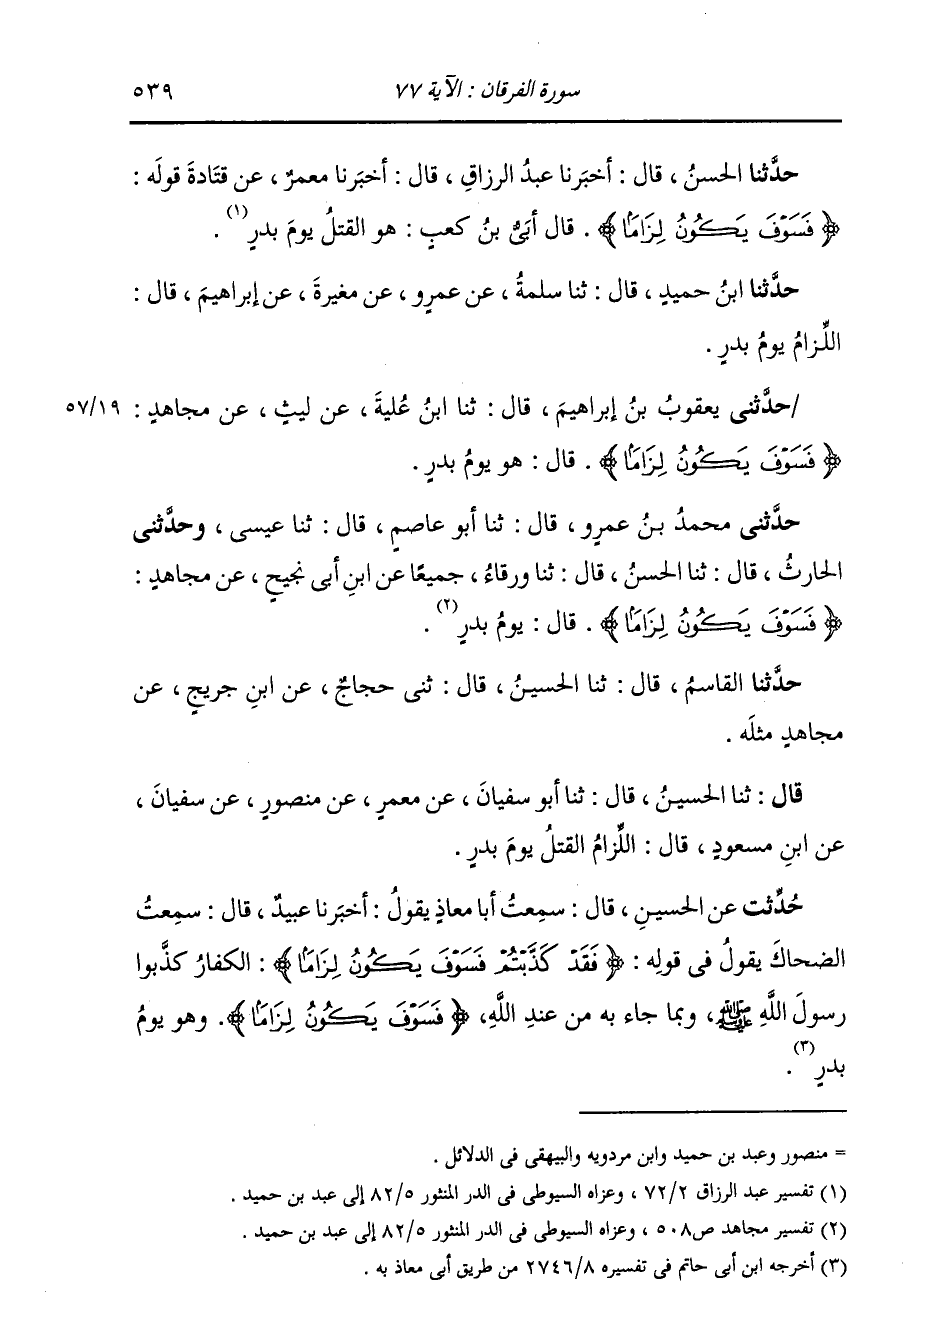 سورة الفرقان : الآية ٧٧ ٥٣٩
حدَّثنا الحسنُ ، قال : أخبَرنا عبدُ الرزاقِ ، قال : أخبَرنا معمرٌ ، عن قتَادةَ قولَه :
﴿ فَسَوْفَ يَكُونُ لِزَامًا ﴾ . قال أُبَيُّ بنُ كعبٍ : هو القتلُ يومَ بدرٍ (١) .
حدَّثنا ابنُ حميدٍ ، قال : ثنا سلمةُ ، عن عمرٍو ، عن مغيرةَ ، عن إبراهيمَ ، قال :
اللِّزامُ يومُ بدرٍ .
/حدَّثنى يعقوبُ بنُ إبراهيمَ ، قال : ثنا ابنُ عُليةَ ، عن ليثٍ ، عن مجاهدٍ : ٥٧/١٩
﴿ فَسَوْفَ يَكُونُ لِزَامًا ﴾ . قال : هو يومُ بدرٍ .
حدَّثنى محمدُ بنُ عمرٍو ، قال : ثنا أبو عاصمٍ ، قال : ثنا عيسى ، وحدَّثنى
الحارثُ ، قال : ثنا الحسنُ ، قال : ثنا ورقاءُ ، جميعًا عن ابنِ أبى نجيحٍ ، عن مجاهدٍ :
﴿ فَسَوْفَ يَكُونُ لِزَامًا ﴾ . قال : يومُ بدرٍ (٢) .
حدَّثنا القاسمُ ، قال : ثنا الحسينُ ، قال : ثنى حجاجٌ ، عن ابنِ جريجٍ ، عن
مجاهدٍ مثلَه .
قال : ثنا الحسينُ ، قال : ثنا أبو سفيانَ ، عن معمرٍ ، عن منصورٍ ، عن سفيانَ ،
عن ابنِ مسعودٍ ، قال : اللِّزامُ القتلُ يومَ بدرٍ .
حُدِّثت عن الحسينِ ، قال : سمِعتُ أبا معاذٍ يقولُ : أخبَرنا عبيدٌ ، قال : سمِعتُ
الضحاكَ يقولُ فى قولِه : ﴿ فَقَدْ كَذَّبْتُمْ فَسَوْفَ يَكُونُ لِزَامًا ﴾ : الكفارُ كذَّبوا
رسولَ اللَّهِ ﷺ، وبما جاء به من عندِ اللَّهِ، ﴿ فَسَوْفَ يَكُونُ لِزَامًا ﴾. وهو يومُ
بدرٍ (٣) .
= منصور وعبد بن حميد وابن مردويه والبيهقى فى الدلائل .
(١) تفسير عبد الرزاق ٧٢/٢ ، وعزاه السيوطى فى الدر المنثور ٨٢/٥ إلى عبد بن حميد .
(٢) تفسير مجاهد ص٥٠٨ ، وعزاه السيوطى فى الدر المنثور ٨٢/٥ إلى عبد بن حميد .
(٣) أخرجه ابن أبى حاتم فى تفسيره ٢٧٤٦/٨ من طريق أبى معاذ به .